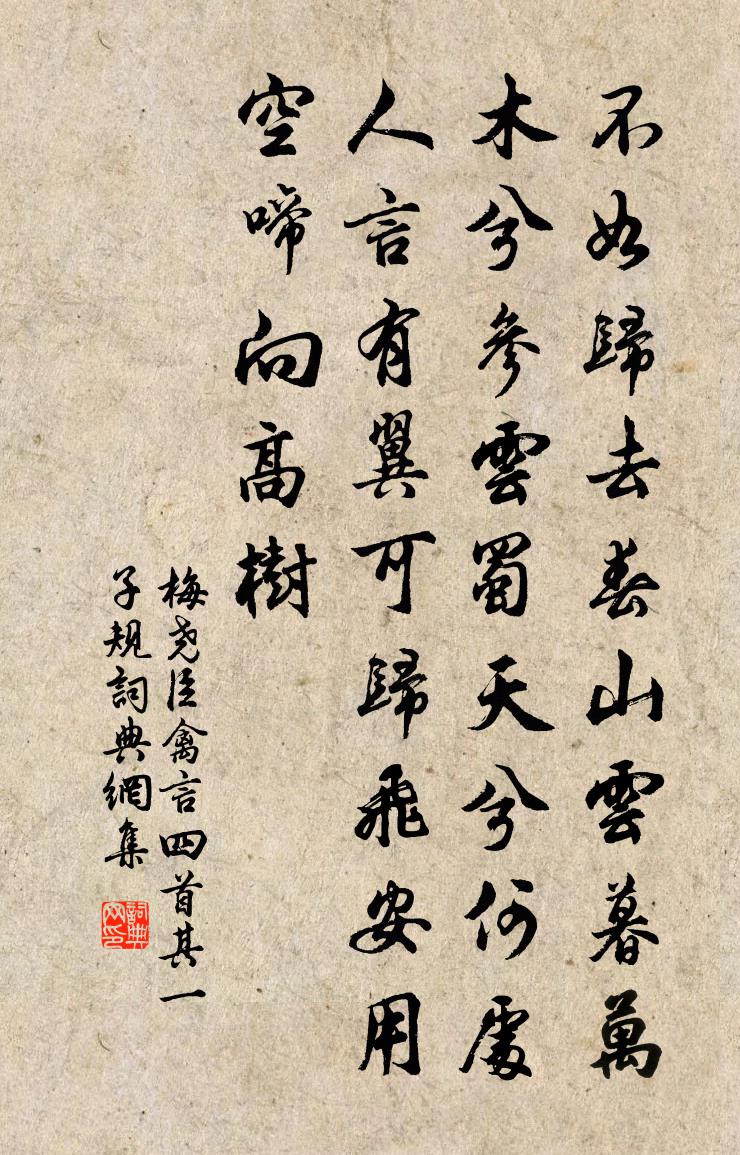 不如歸去春山雲暮萬
木兮參雲蜀天兮何處
人言有翼可歸飛安用
空啼向高樹
梅尧臣禽言四首其一
子規詞典網集
詞典
网印